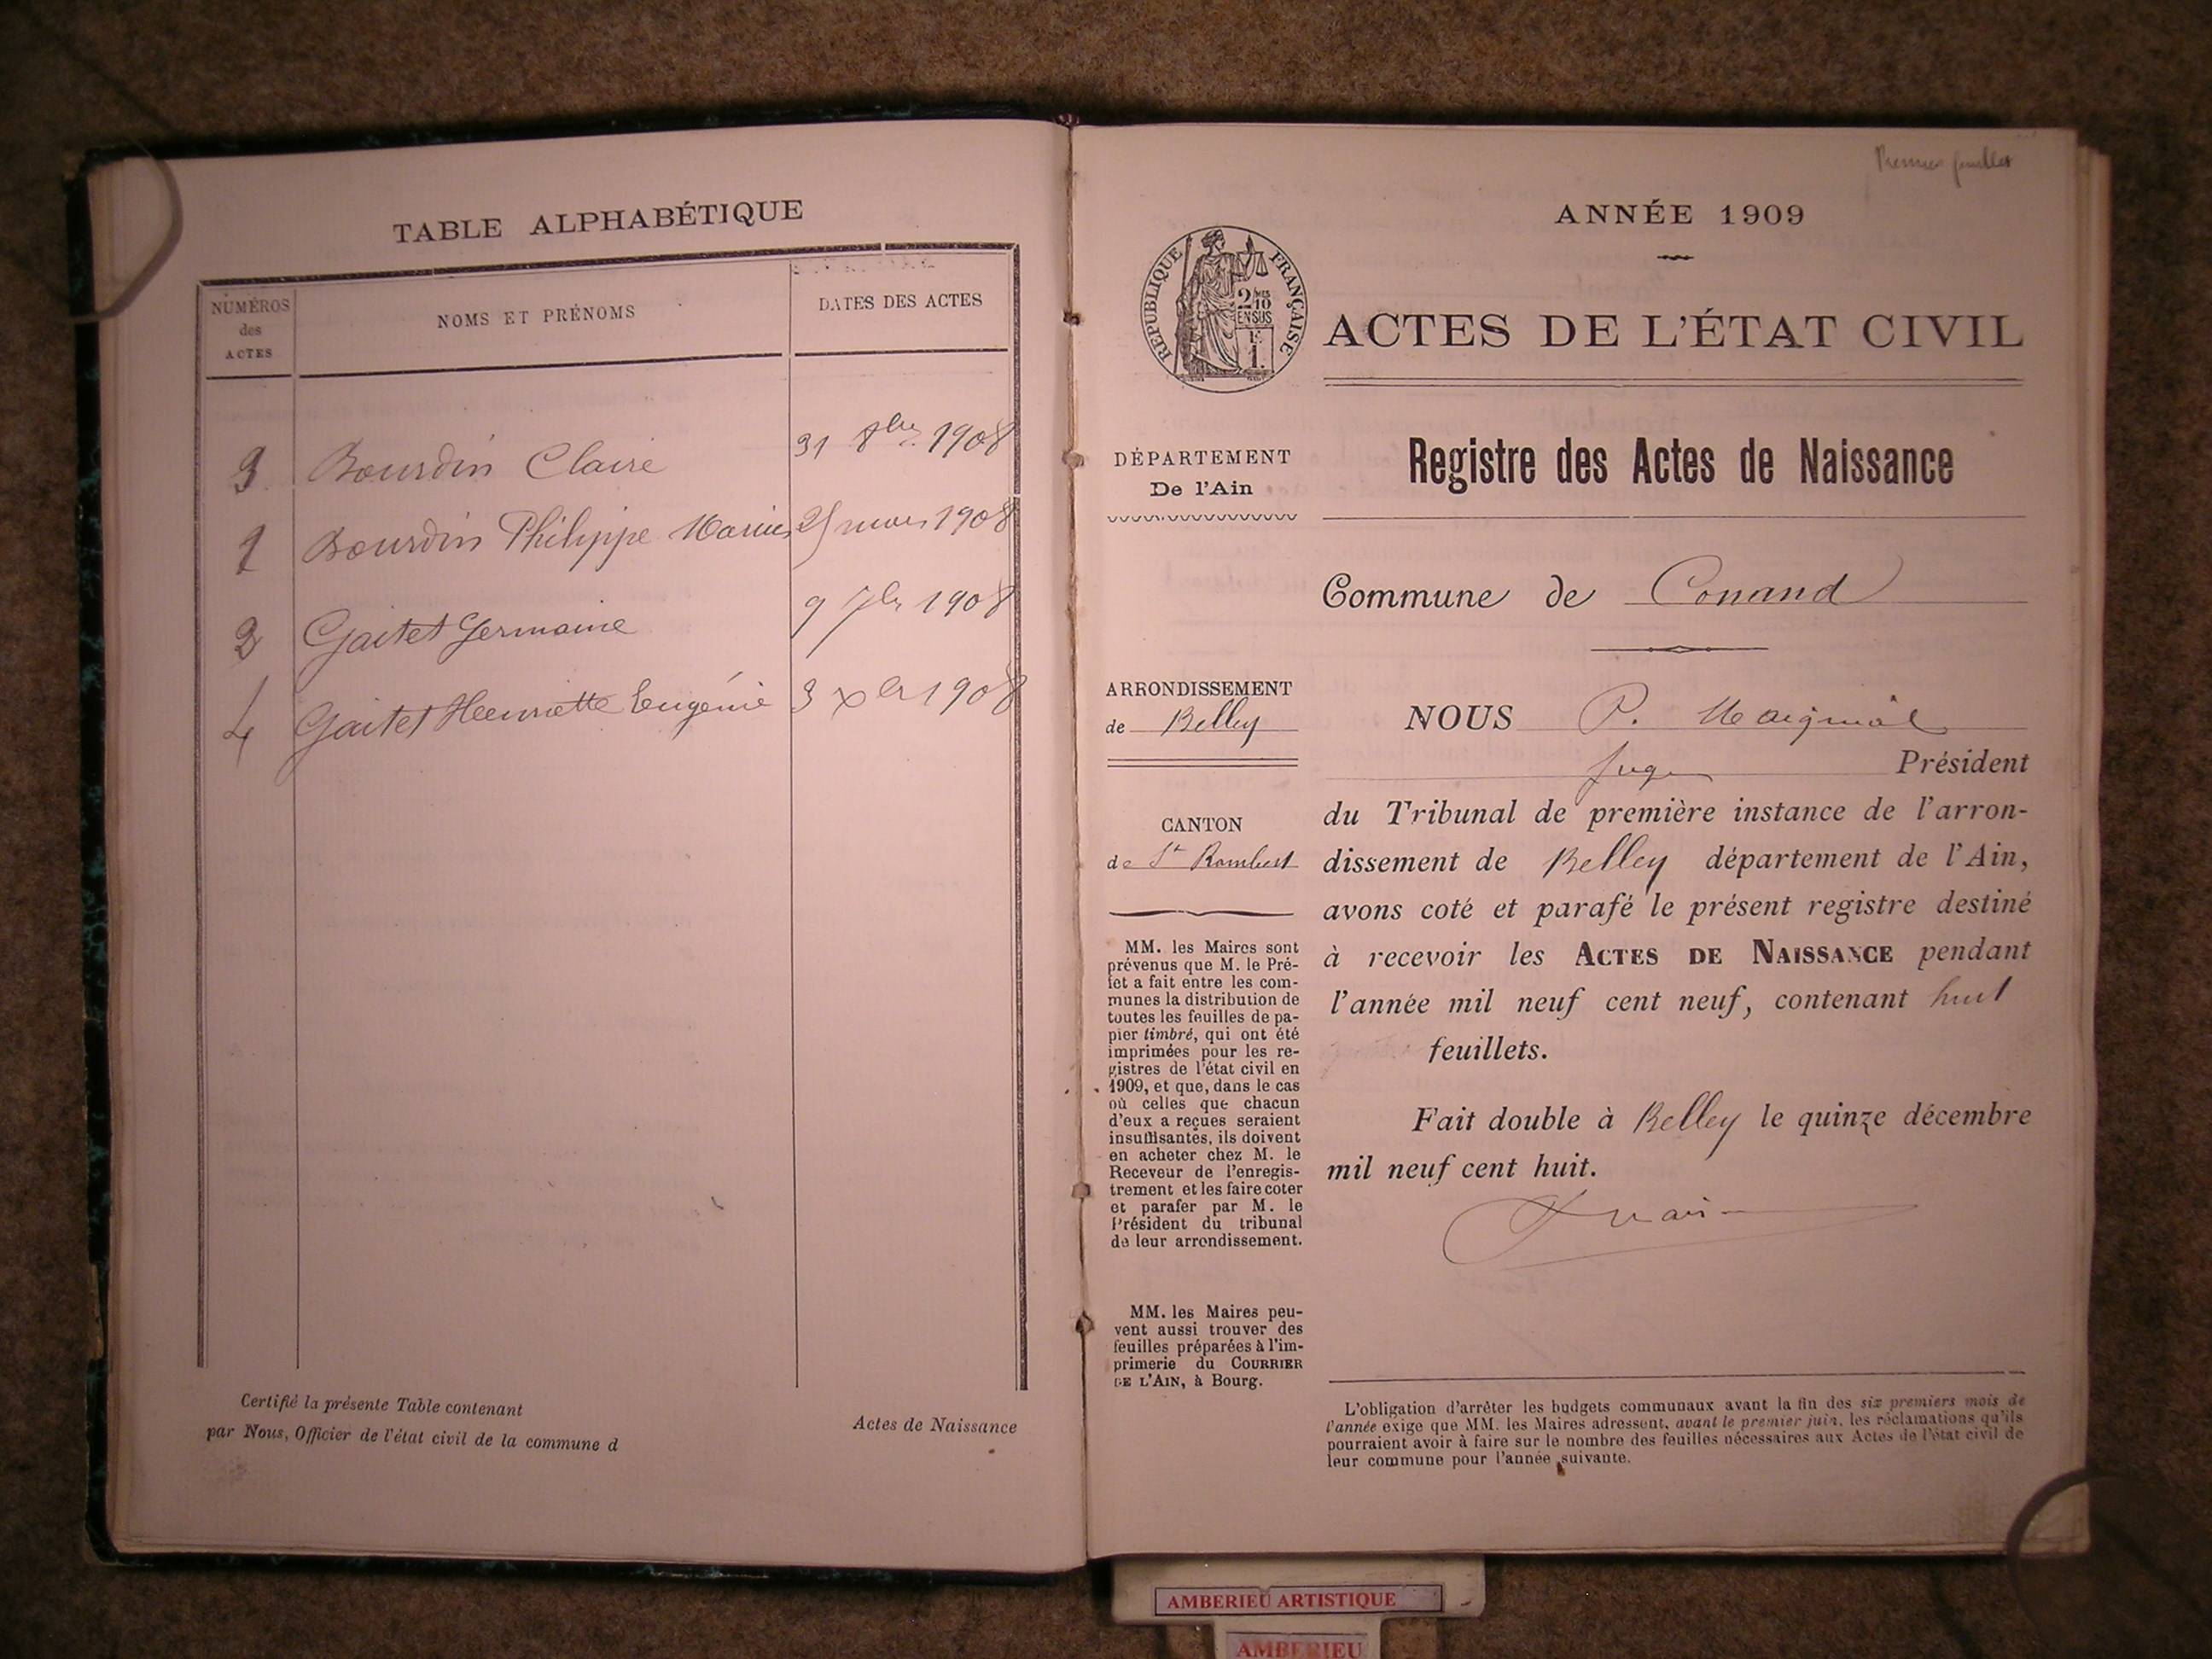 TABLE ALPHABÉTIQUE
NUMÉROS
des
ACTES
NOMS ET PRÉNOMS
DATES DES ACTES
3 Bourdin Claire 31 8bre 1908
1 Bourdin Philippe Marius 25 mars 1908
2 Gaitet Germaine 9 7bre 1908
4 Gaitet Henriette Eugénie 3 xbre 1908
Certifié la présente Table contenant
Actes de Naissance
par Nous, Officier de l'état civil de la commune d
Premier feuillet
ANNÉE 1909
RÉPUBLIQUE FRANÇAISE
2/10
EN SUS
1.
ACTES DE L'ÉTAT CIVIL
DÉPARTEMENT
De l'Ain
ARRONDISSEMENT
de Belley
CANTON
de St Rambert
MM. les Maires sont
prévenus que M. le Pré-
fet a fait entre les com-
munes la distribution de
toutes les feuilles de pa-
pier timbré, qui ont été
imprimées pour les re-
gistres de l'état civil en
1909, et que, dans le cas
où celles que chacun
d'eux a reçues seraient
insuffisantes, ils doivent
en acheter chez M. le
Receveur de l'enregis-
trement et les faire coter
et parafer par M. le
Président du tribunal
de leur arrondissement.
MM. les Maires peu-
vent aussi trouver des
feuilles préparées à l'im-
primerie du COURRIER
DE L'AIN, à Bourg.
Registre des Actes de Naissance
Commune de Conand
NOUS P.
juge Président
du Tribunal de première instance de l'arron-
dissement de Belley département de l'Ain,
avons coté et parafé le présent registre destiné
à recevoir les ACTES DE NAISSANCE pendant
l'année mil neuf cent neuf, contenant huit
feuillets.
Fait double à Belley le quinze décembre
mil neuf cent huit.
L'obligation d'arrêter les budgets communaux avant la fin des six premiers mois de
l'année exige que MM. les Maires adressent, avant le premier juin, les réclamations qu'ils
pourraient avoir à faire sur le nombre des feuilles nécessaires aux Actes de l'état civil de
leur commune pour l'année suivante.
AMBERIEU ARTISTIQUE
AMBERIEU